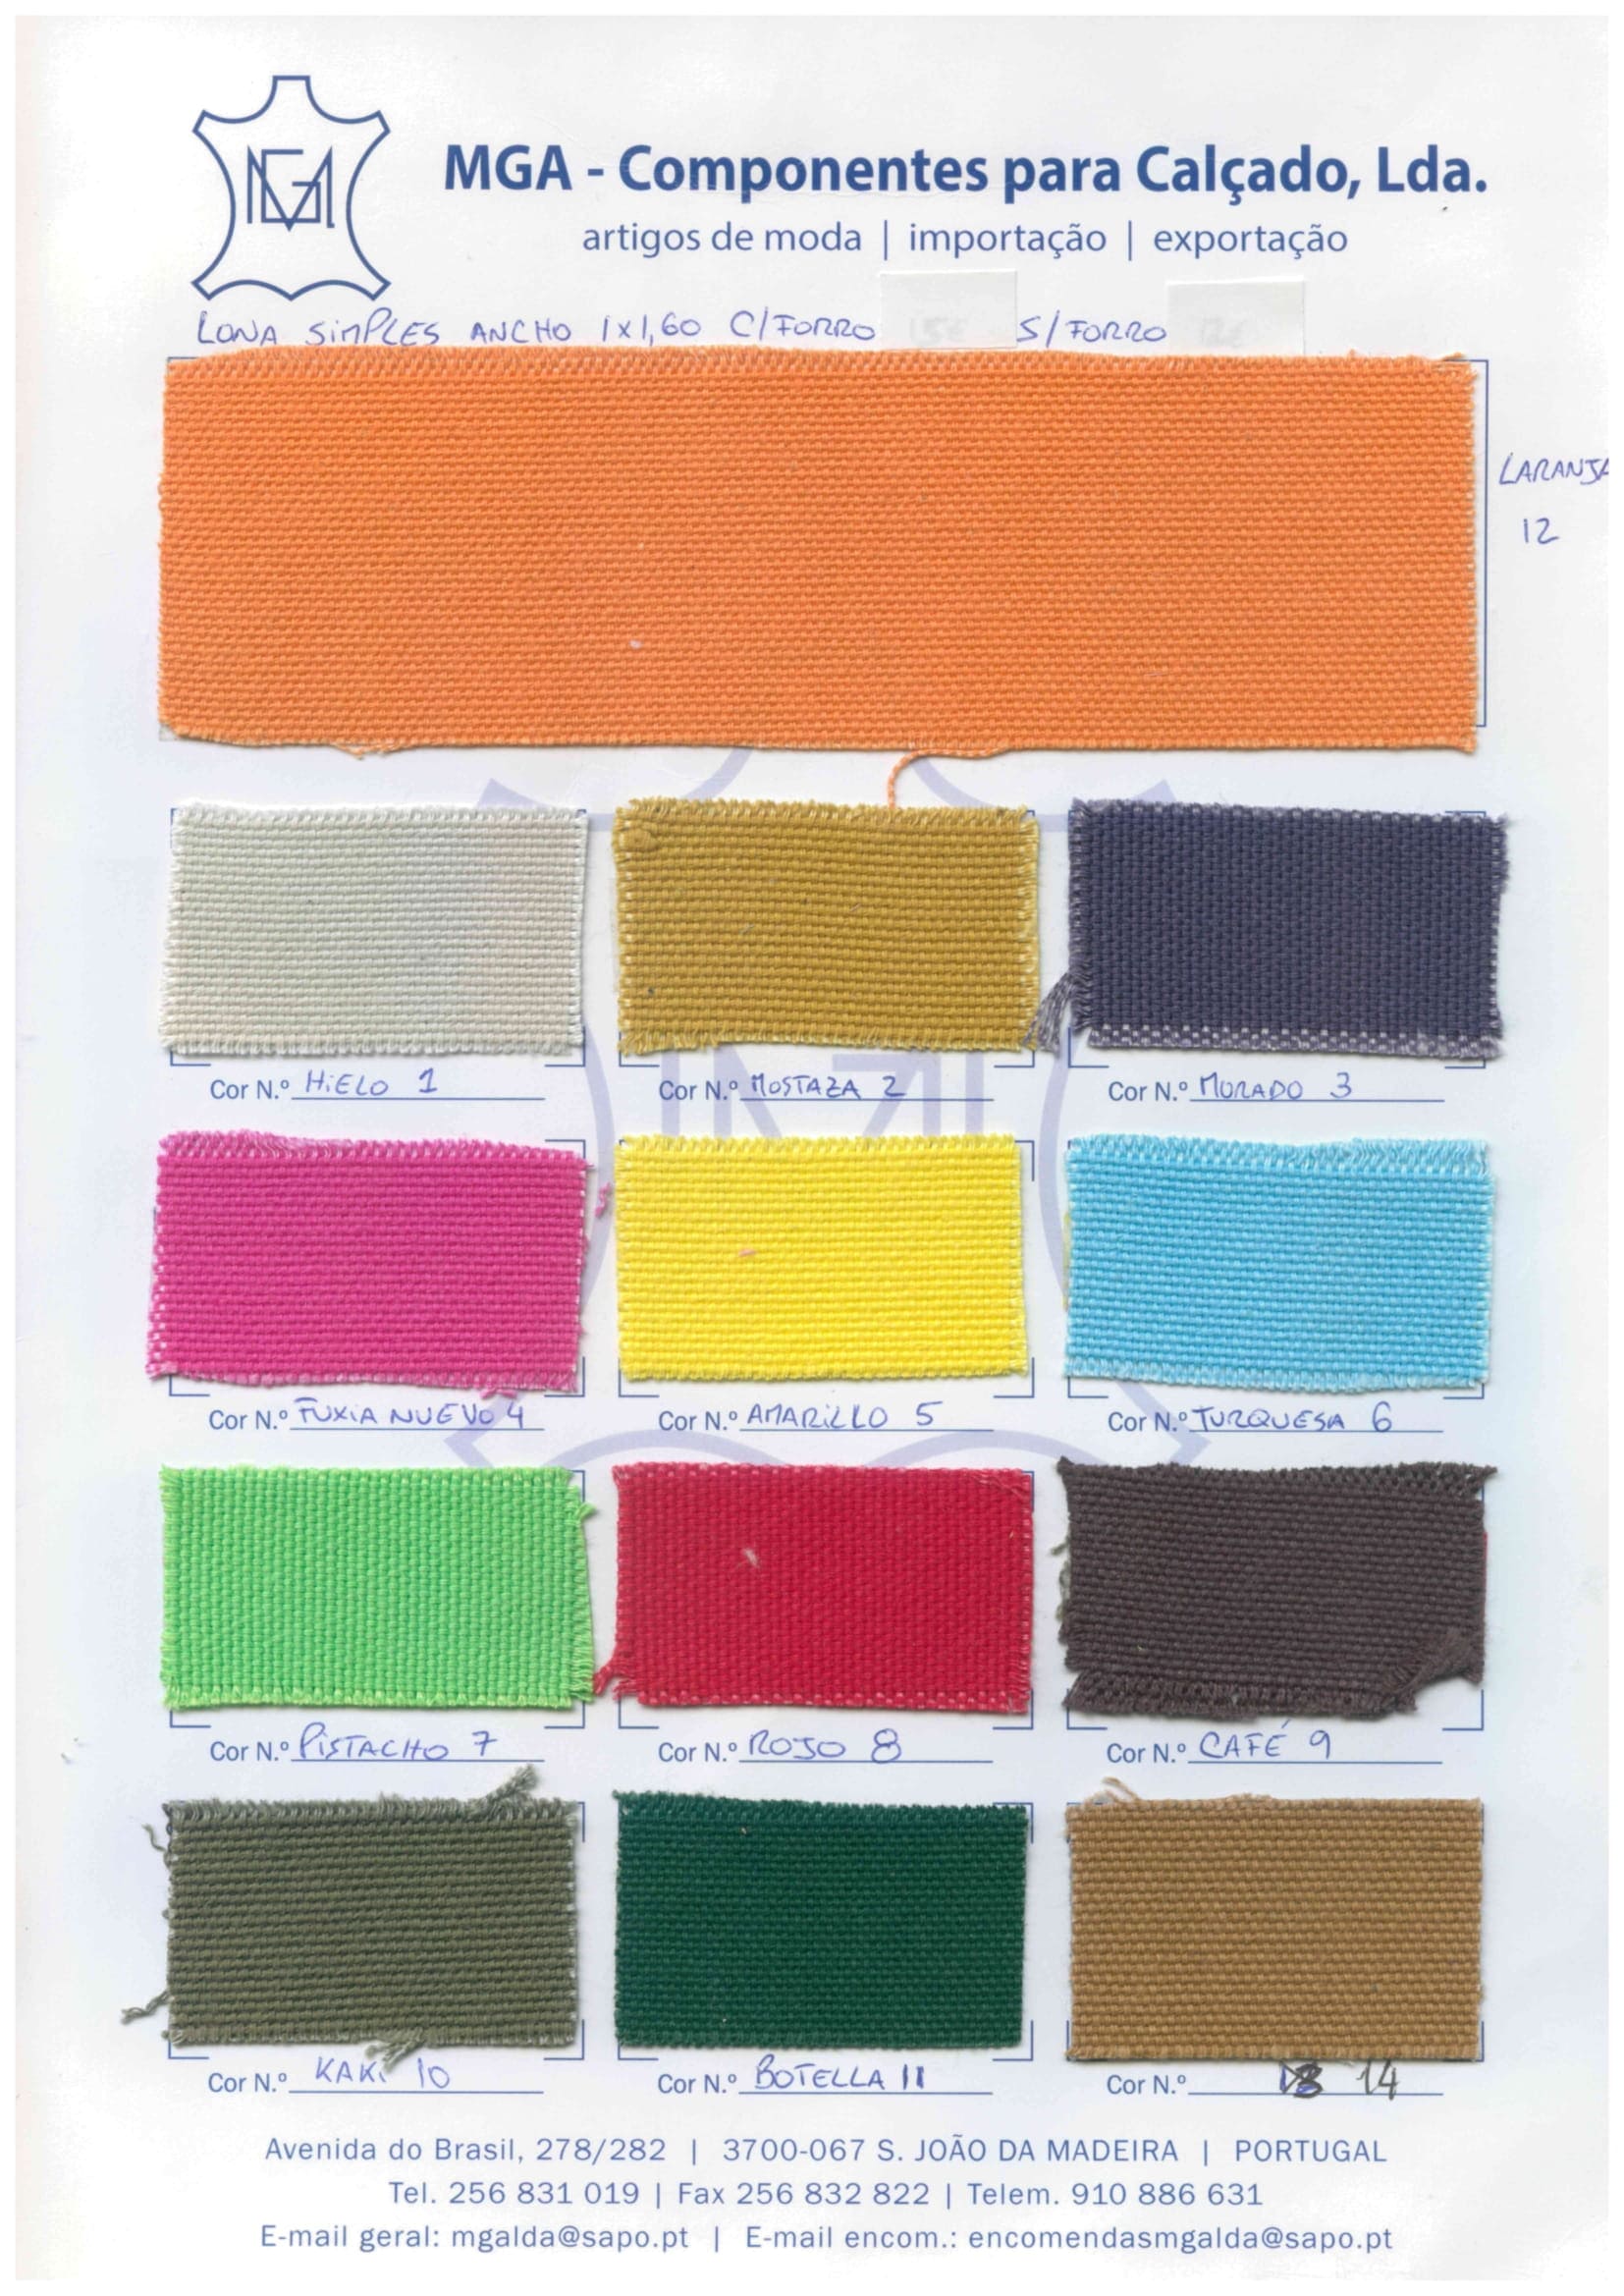 MGA - Componentes para Calçado, Lda.
artigos de moda | importação | exportação
LONA SIMPLES ANCHO 1x1,60 C/FORRO S/FORRO
LARANJA
12
Cor N.º HIELO 1
Cor N.º MOSTAZA 2
Cor N.º MORADO 3
Cor N.º FUXIA NUEVO 4
Cor N.º AMARILLO 5
Cor N.º TURQUESA 6
Cor N.º PISTACHO 7
Cor N.º ROJO 8
Cor N.º CAFÉ 9
Cor N.º KAKI 10
Cor N.º BOTELLA 11
Cor N.º 14
Avenida do Brasil, 278/282 | 3700-067 S. JOÃO DA MADEIRA | PORTUGAL
Tel. 256 831 019 | Fax 256 832 822 | Telem. 910 886 631
E-mail geral: mgalda@sapo.pt | E-mail encom.: encomendasmgalda@sapo.pt